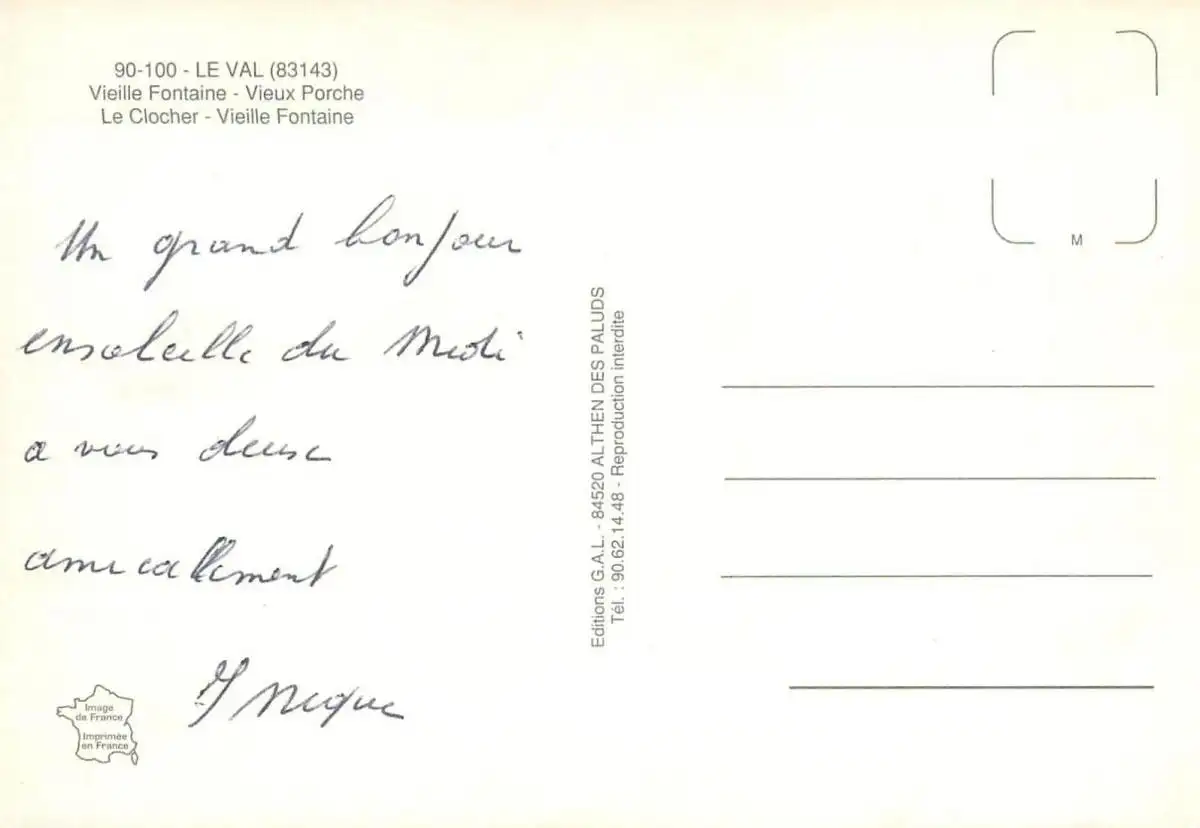 90-100 - LE VAL (83143)
Vieille Fontaine - Vieux Porche
Le Clocher - Vieille Fontaine
Un grand bonjour
ensoleillé du Midi
a vous deux
amicallement
Editions G.A.L. - 84520 ALTHEN DES PALUDS
Tél. : 90.62.14.48 - Reproduction interdite
M
Image
de France
Imprimée
en France